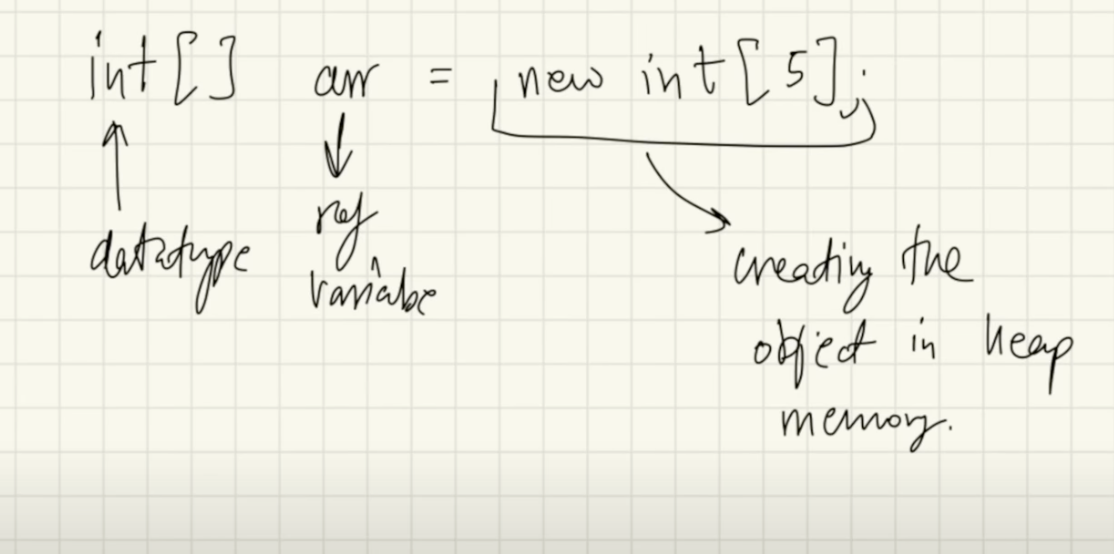 int[] arr = new int[5];
datatype
ref
variabe
creating the
object in heap
memory.